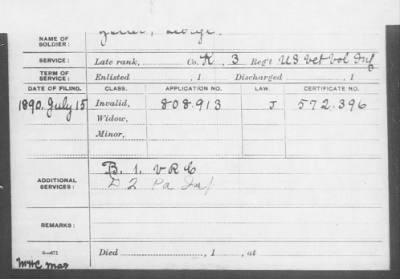 NAME OF SOLDIER: George.
SERVICE: Late rank, Co. K, 3 Reg't US Vet Vol Inf
TERM OF SERVICE: Enlisted , 1 Discharged , 1
DATE OF FILING. CLASS. APPLICATION NO. LAW. CERTIFICATE NO.
1890. July 15 Invalid, 808.913 J 572.396
Widow,
Minor,
ADDITIONAL SERVICES: B. 1. V R C
D 2 Pa Inf
REMARKS:
Died , 1 , at